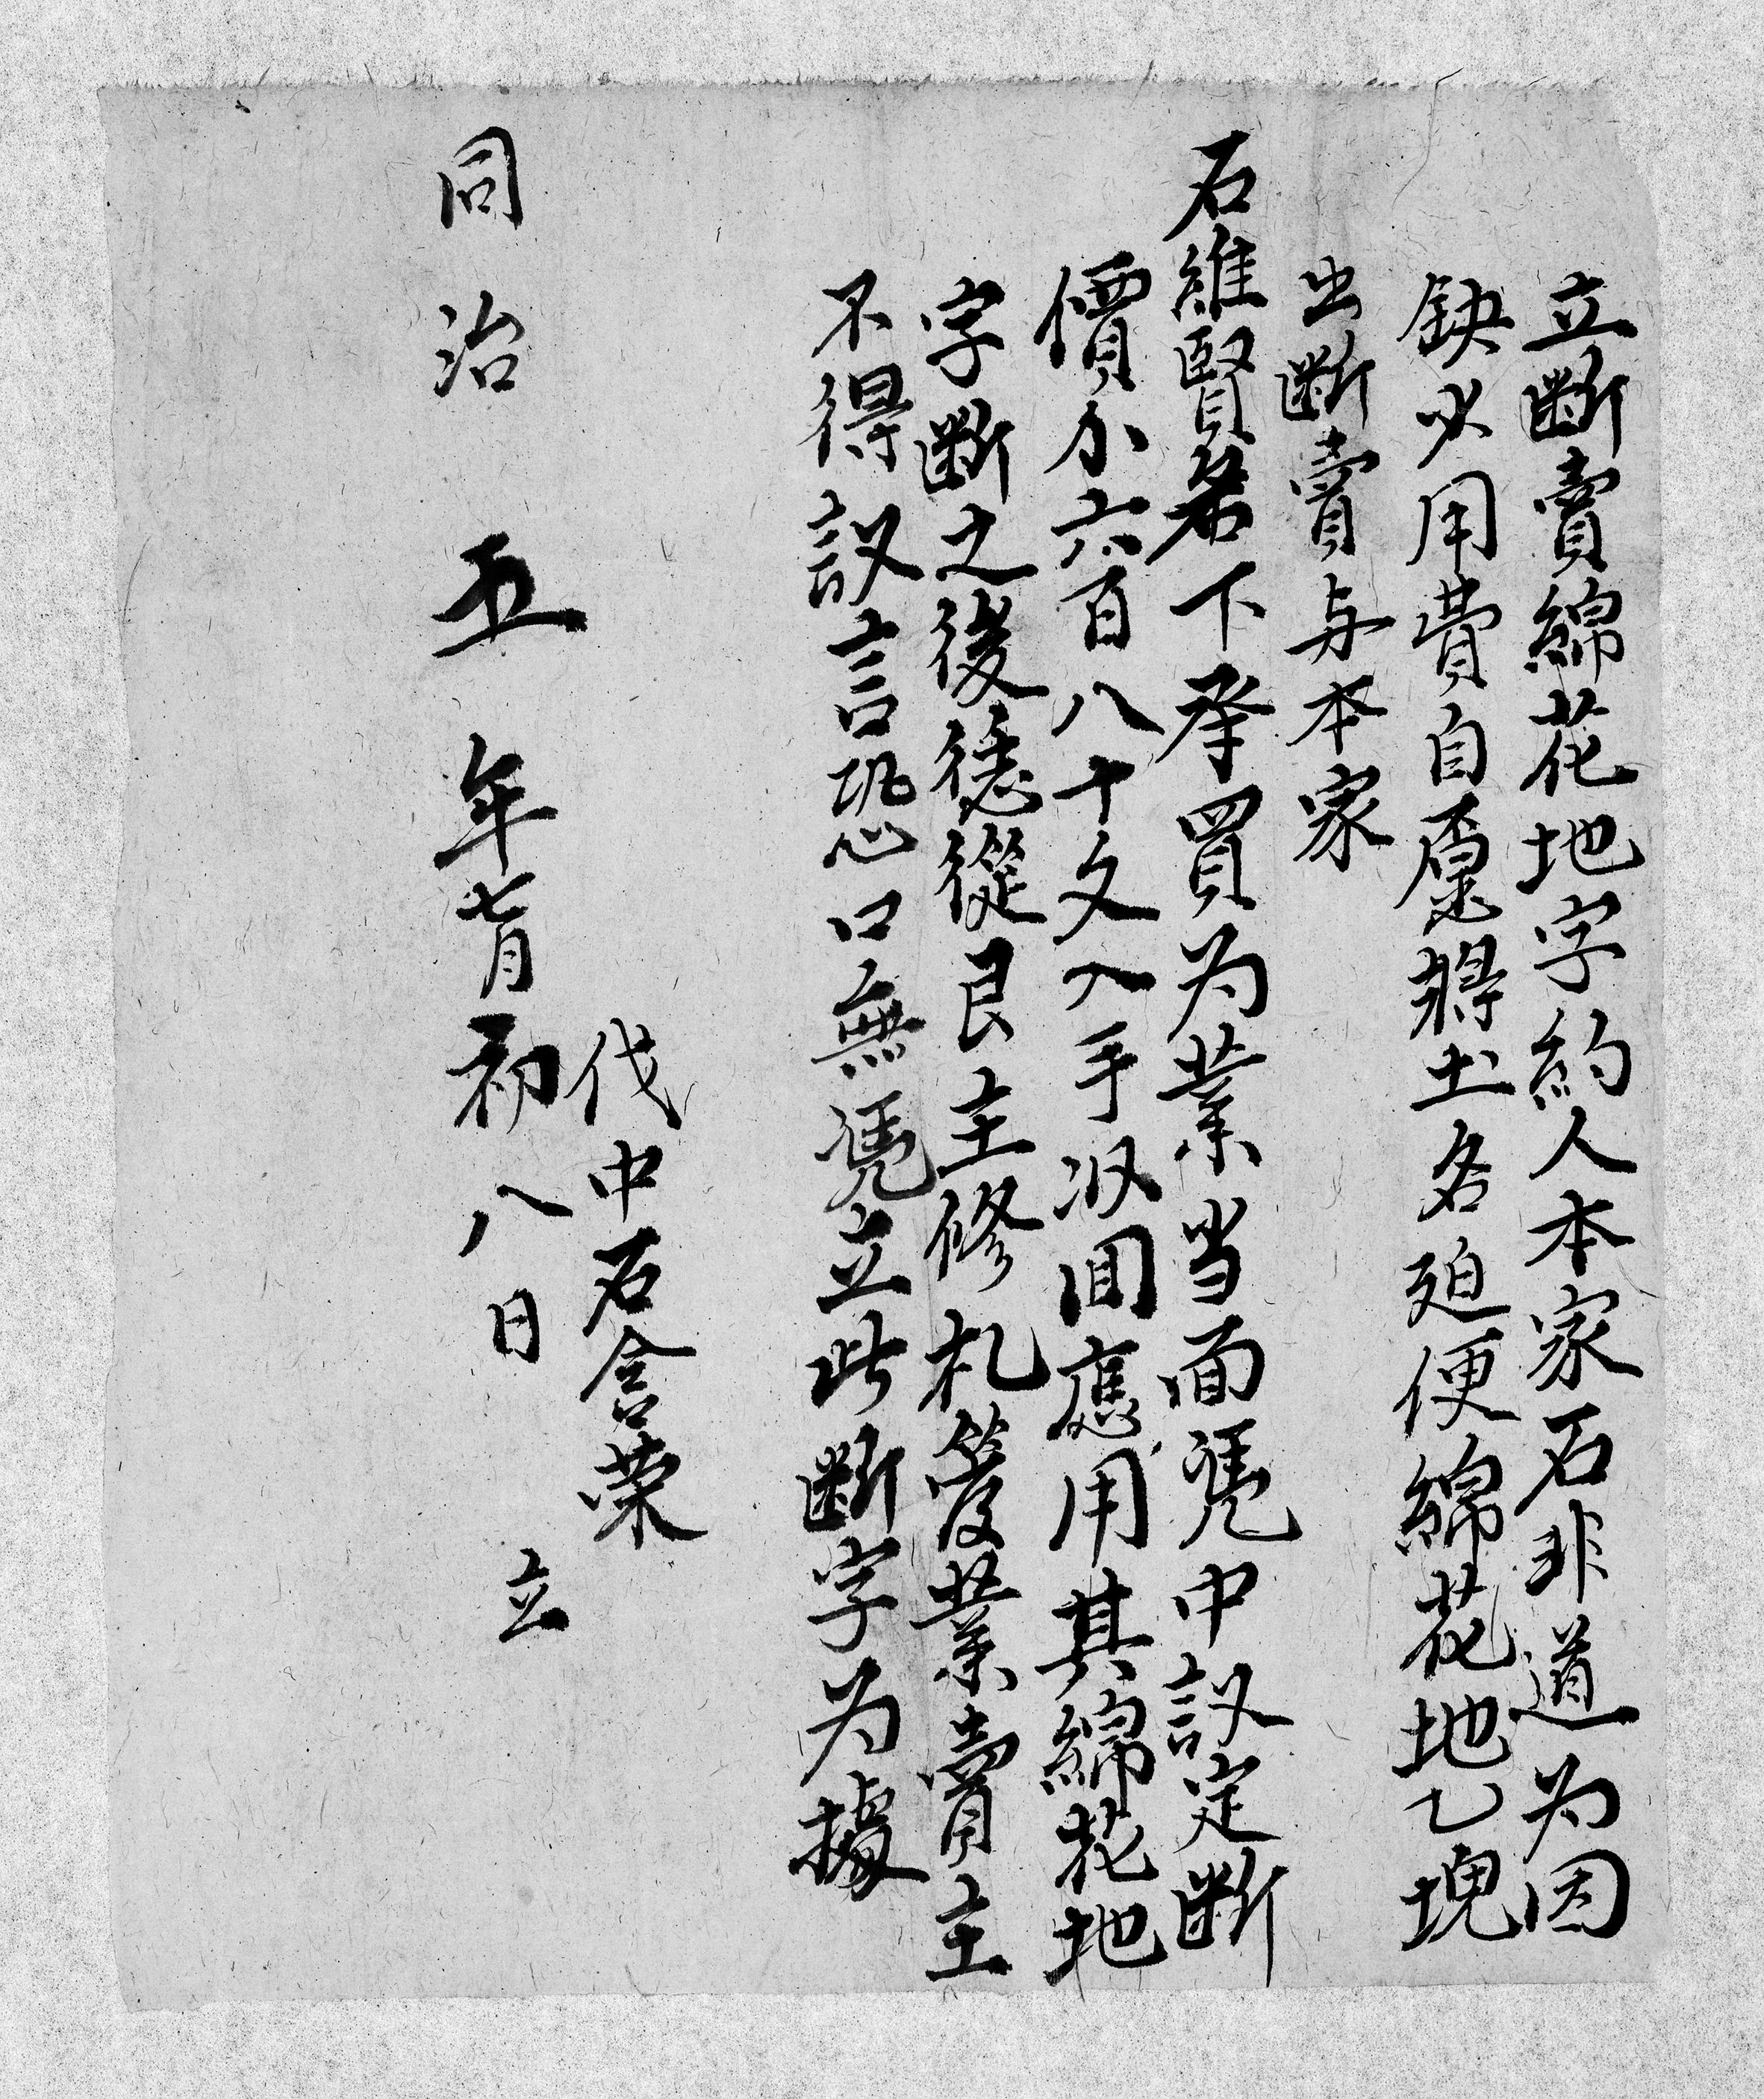 立斷賣綿花地字約人本家石非道为因
鈌少用費自愿將土名廹便綿花地乙塊
出斷賣与本家
石維賢名下承買为業当面凴中議定斷
價六百八十文入手収回應用其綿花地
字斷之後從艮主修札管業賣主
不得議言恐口無凴立此斷字为據
伐中石含荣
同治五年七月初八日立